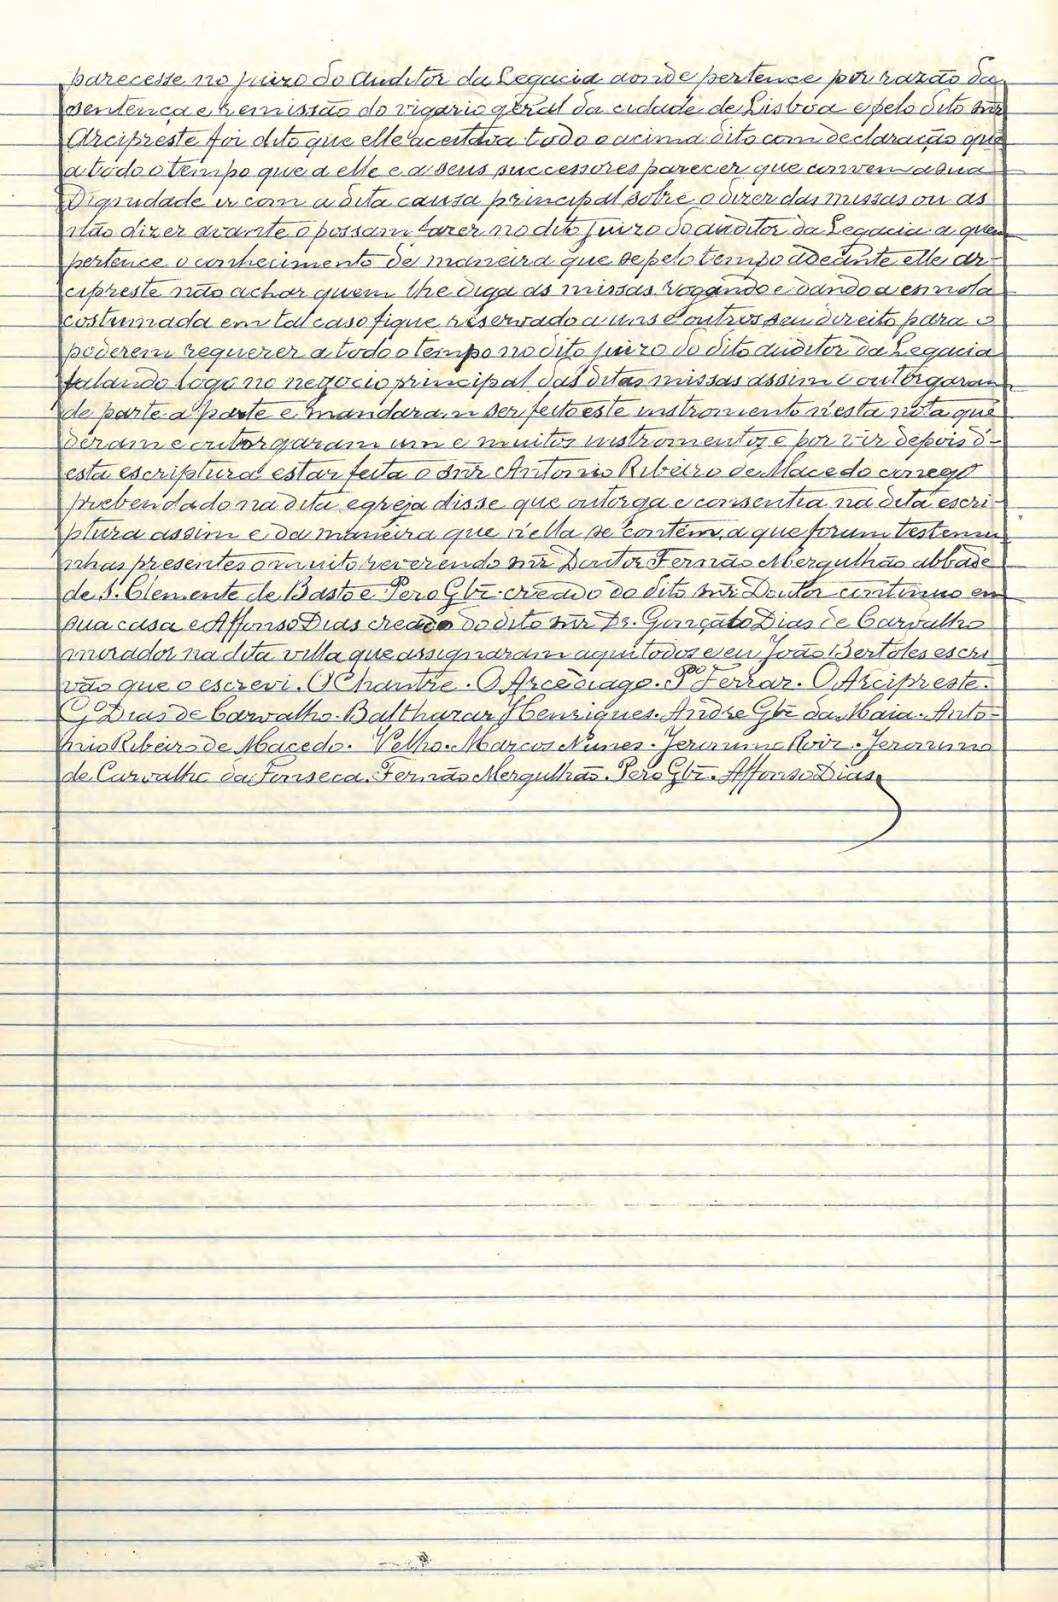 parecesse no juizo do auditor da Legacia aonde pertence por razão da
sentença e remissão do vigario geral da cidade de Lisboa e pelo dito snr̃
Arcipreste foi dito que elle aceitava todo o acima dito com declaração que
a todo o tempo que a elle e a seus successores parecer que convem a sua
Dignidade ir com a dita causa principal sobre o dizer das missas ou as
não dizer avante o possam fazer no dito juizo do auditor da Legacia a quem
pertence o conhecimento de maneira que se pelo tempo adeante elle ar-
cipreste não achar quem lhe diga as missas rogando e dando a esmola
costumada em tal caso fique reservado a uns e outros seu direito para o
poderem requerer a todo o tempo no dito juizo do dito auditor da Legacia
falando logo no negocio principal das ditas missas assim o outorgaram
de parte a parte e mandaram ser feito este instromento n'esta nota que
deram e outorgaram um e muitos instromentos e por vir depois d'-
esta escriptura estar feita o snr̃ Antonio Ribeiro de Macedo conego
prebendado na dita egreja disse que outorga e consentia na dita escri-
ptura assim e da maneira que n'ella se contém, a que foram testemu-
nhas presentes o muito reverendo snr̃ Doutor Fernão Mergulhão abbade
de S. Clemente de Basto e Pero Glz̃ creado do dito snr̃ Doutor continuo em
sua casa e Affonso Dias creado do dito snr̃ Dr. Gonçalo Dias de Carvalho
morados na dita villa que assignaram aqui todos e eu João Bertoles escri-
vão que o escrevi. O Chantre. O Arcediago. P.º Ferraz. O Arcipreste.
G.º Dias de Carvalho. Balthazar Henriques. André Glz̃ da Maia. Anto-
nio Ribeiro de Macedo. Velho. Marcos Nunes. Jeronimo Roiz. Jeronimo
de Carvalho da Fonseca. Fernão Mergulhão. Pero Glz̃. Affonso Dias